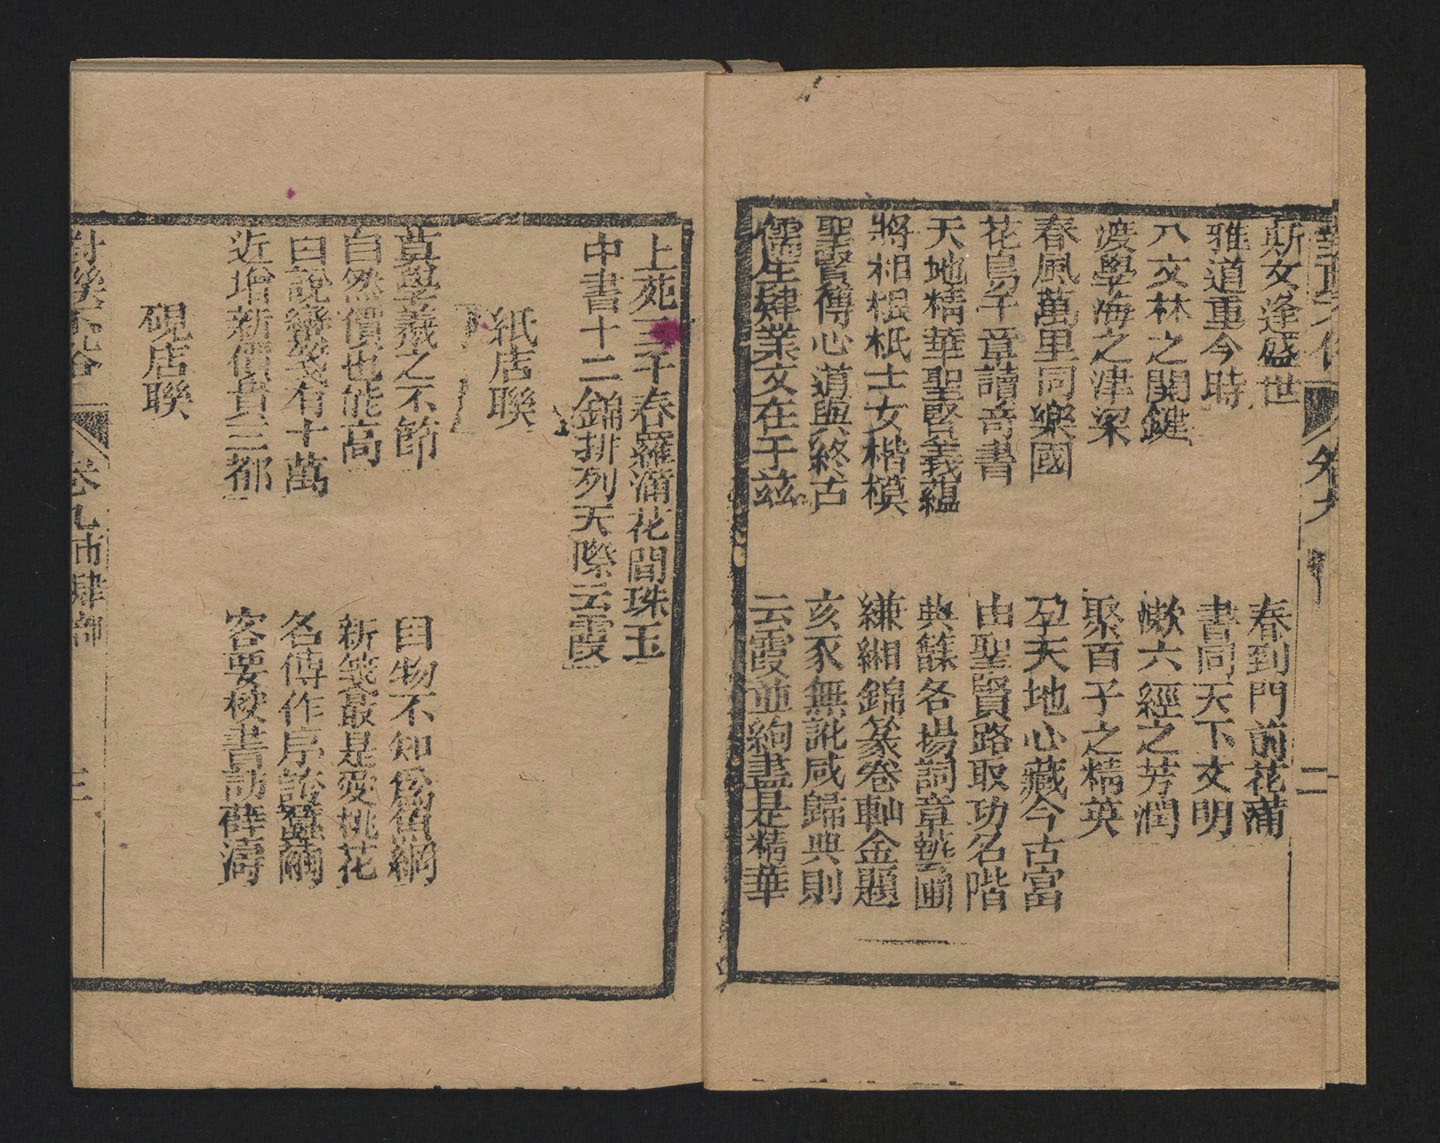 卷九
二
斯文逢盛世
春到門前花滿
雅道重今時
書同天下文明
入文林之関鍵
漱六經之芳潤
渡學海之津梁
聚百子之精英
春風萬里同樂國
孕天地心藏今古富
花鳥千章讀奇書
由聖賢路取功名階
天地精華聖賢義蘊
典餘各揚詞章藝圃
將相根柢士女楷模
縑緗錦篆卷軸金題
聖賢傳心道與終古
亥豕無訛咸歸典則
儒生肄業文在于玆
云霞並絢盡是精華
上苑三千春羅滿花間珠玉
中書十二錦排列天際云霞
紙店聯
莫學義之不節
目物不知係蜀網
自然價也能高
新箋最是愛桃花
曰說蠻箋有十萬
名傳作序認蠶繭
近增新價貴三都
客要校書訪薛濤
硯店聯
卷九市肆部
三